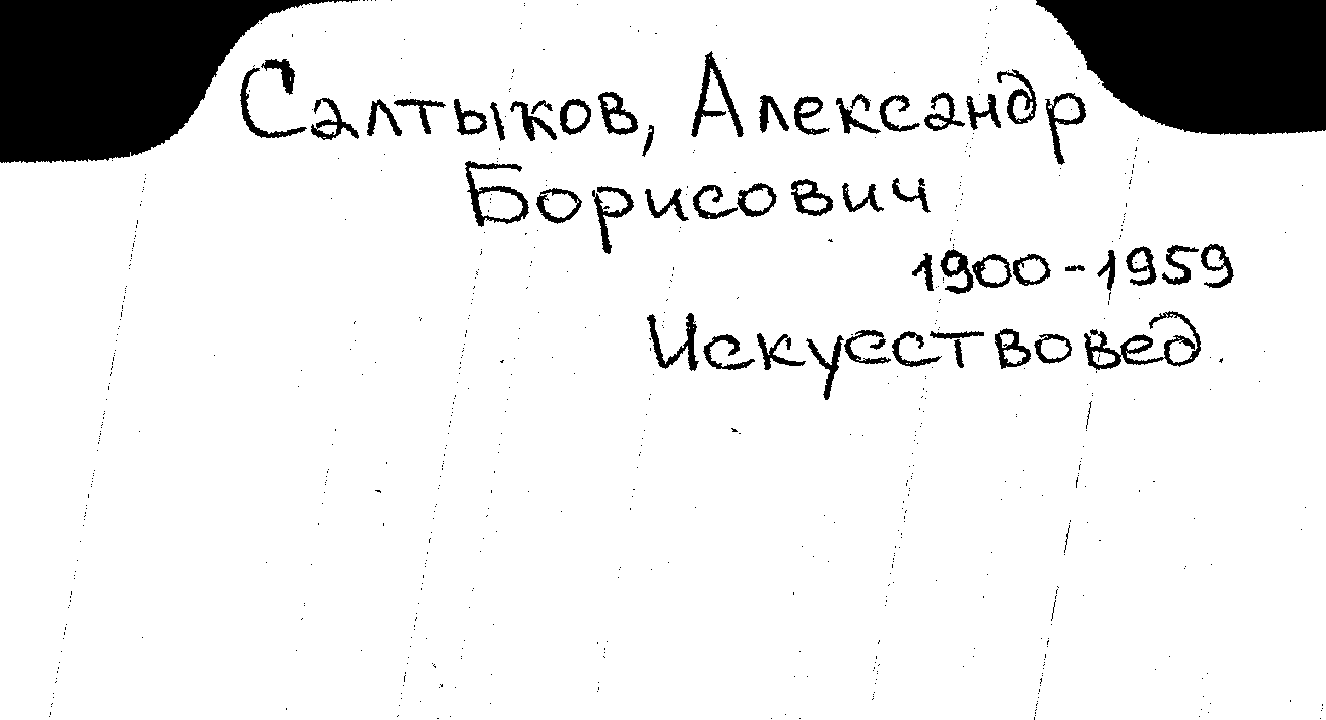 Салтыков, Александр
Борисович
1900-1959
Искусствовед.